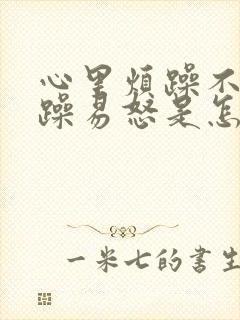 心里烦躁不
躁易怒是怎
一米七的书生